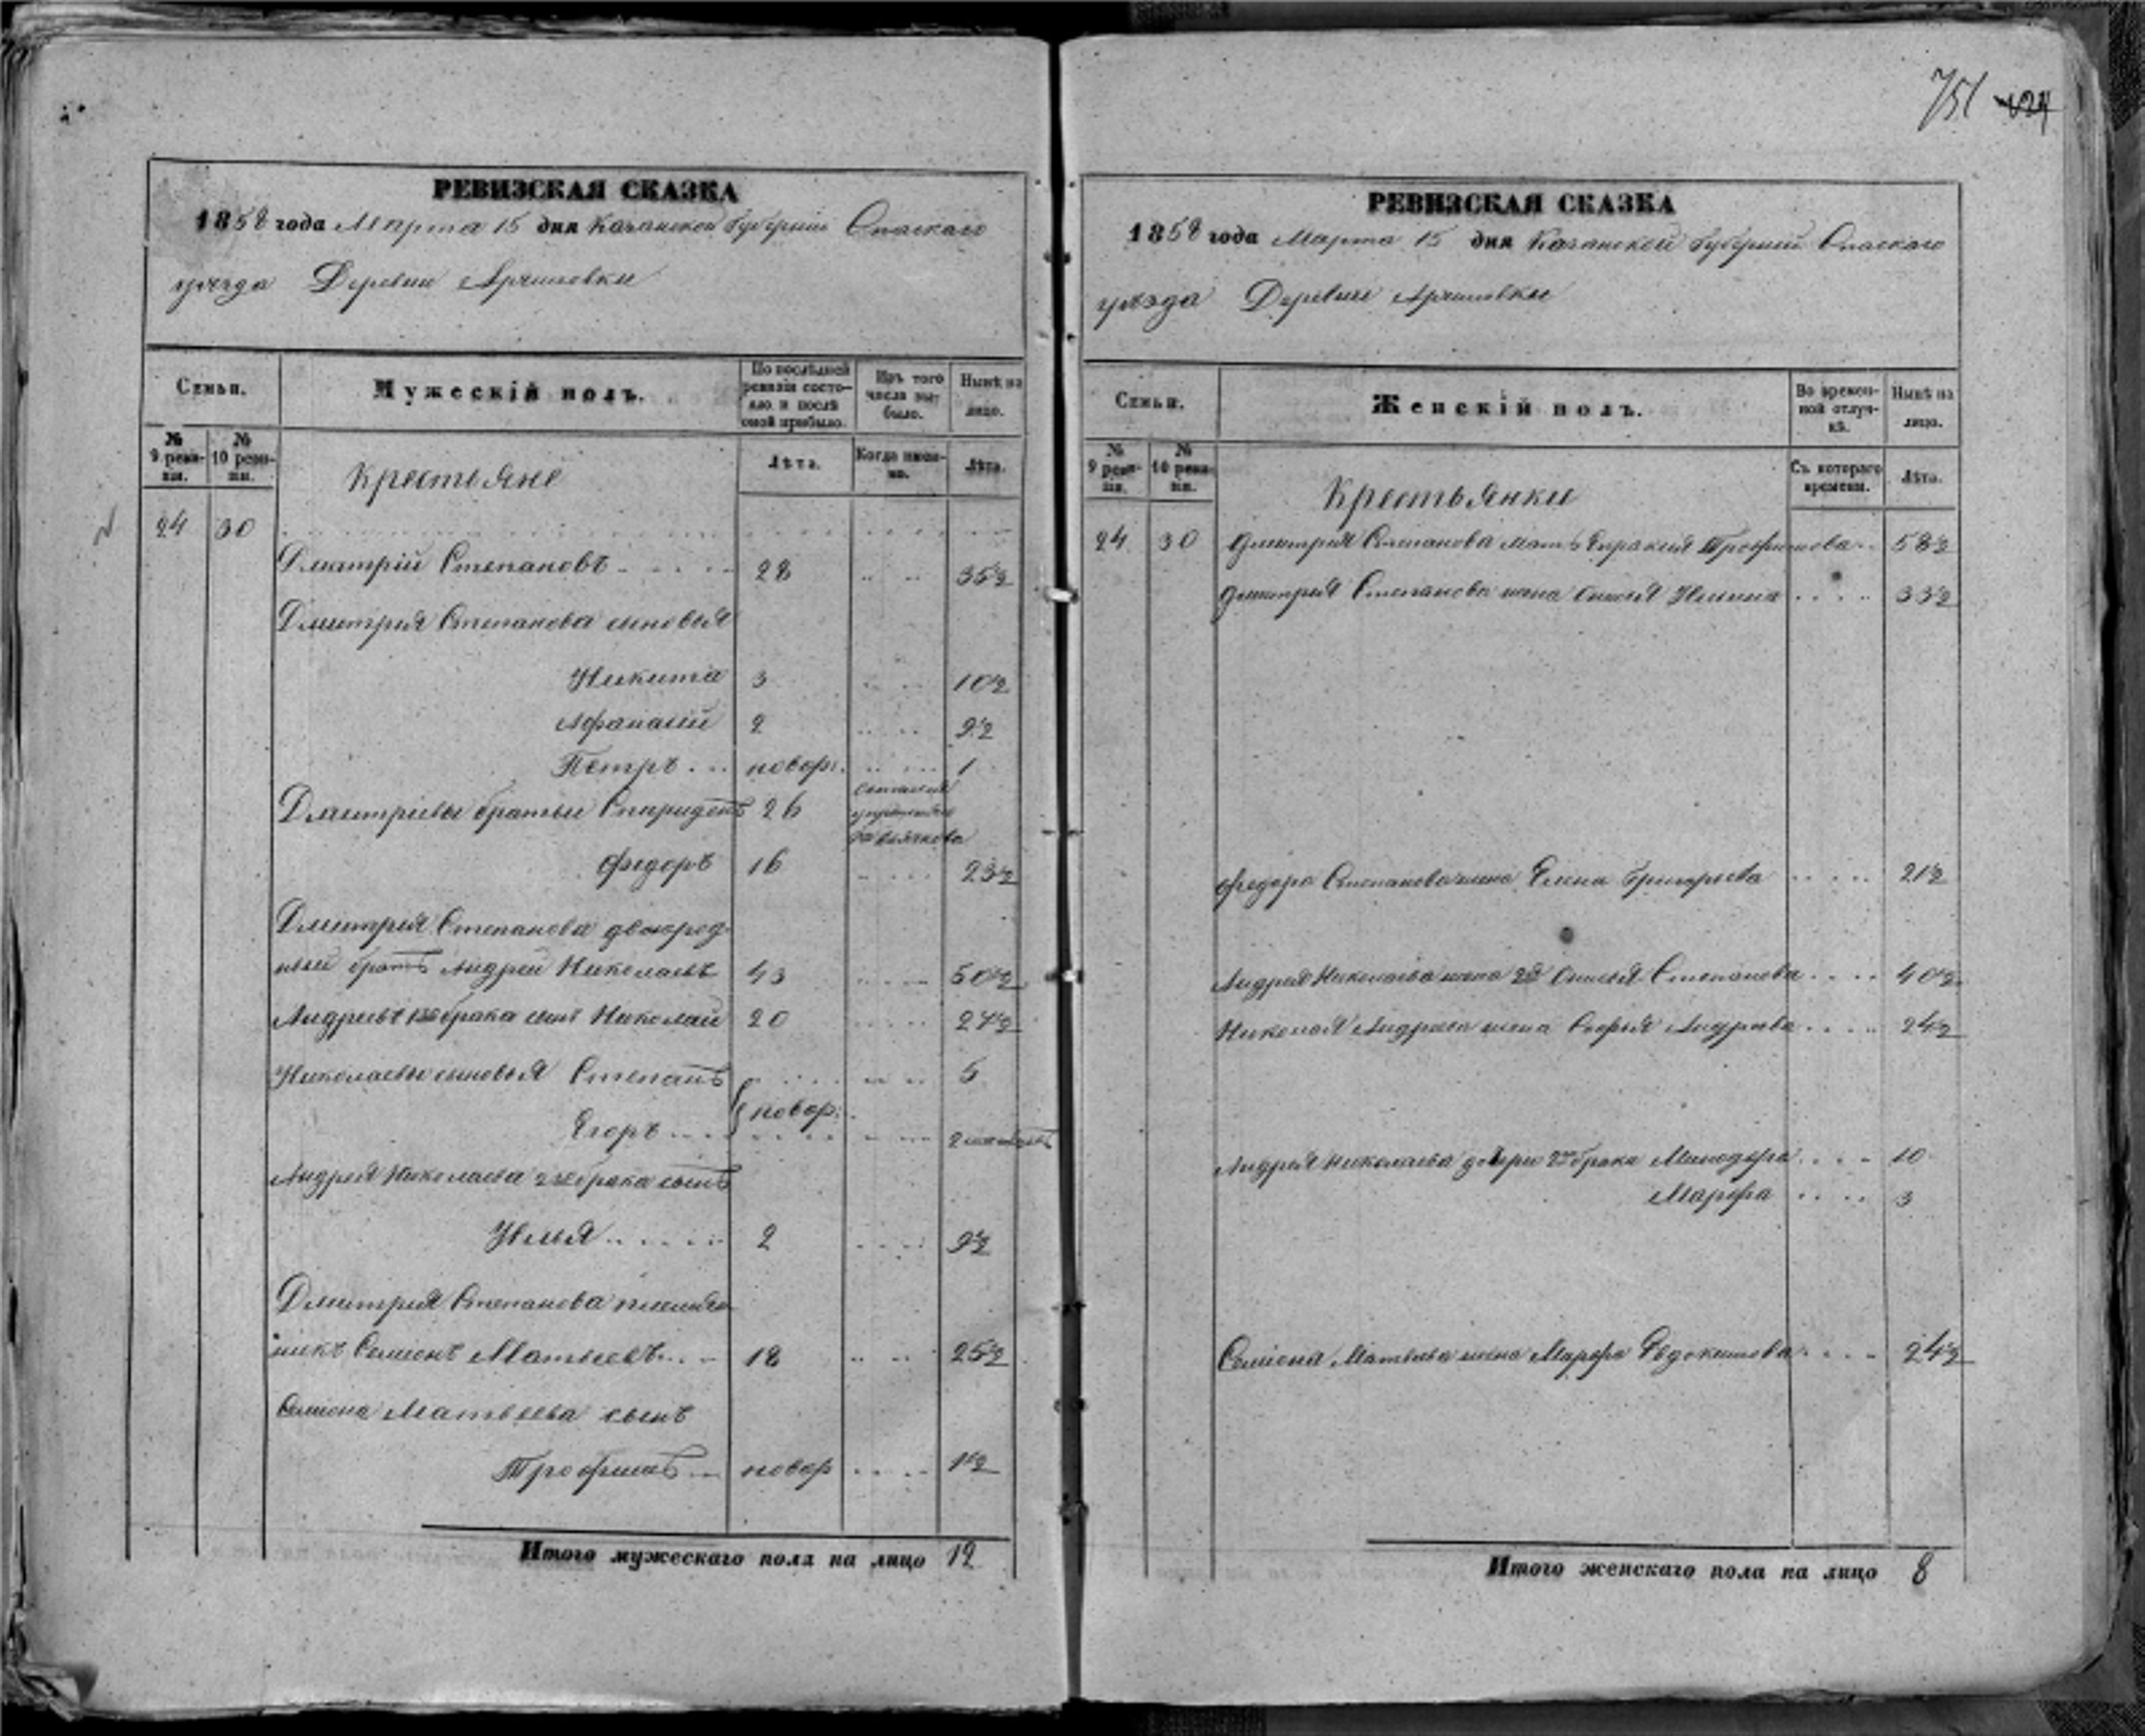 751
РЕВИЗСКАЯ СКАЗКА
1858 года Марта 15 дня Казанской Губернии Спаскаго
уезда Деревни
Семьи.
Мужескій полъ.
По послѣдней ревизіи состояло и послѣ оной прибыло.
Изъ того числа выбыло.
Нынѣ на лицо.
№ 9 ревизіи.
№ 10 ревизіи.
Крестьяне
Лѣта.
Когда именно.
Лѣта.
24 30
Дмитрій Степановъ 28 35½
Дмитрия Степанова сыновья
Никита 3 10½
Афанасий 2 9½
Петръ новор: 1
Дмитриевы братья Спиридонъ 26
Федоръ 16 23½
Дмитрия Степанова двоюрод
ный братъ Андрей Николаевъ 43 50½
Андреевъ 1го брака сынъ Николай 20 27½
Николаевы сыновья Степанъ 5
новор:
Егоръ
Андрея Николаева 2го брака сынъ
Илья 2 9½
Дмитрия Степанова племян
никъ Семионъ Матвеевъ 18 25½
Семиона Матвеева сынъ
Трофимъ новор 1½
Итого мужескаго пола на лицо 12
РЕВИЗСКАЯ СКАЗКА
1858 года Марта 15 дня Казанской Губернии Спаскаго
уезда Деревни
Семьи.
Женскій полъ.
Во временной отлучкѣ.
Нынѣ на лицо.
№ 9 ревизіи.
№ 10 ревизіи.
Крестьянки
Съ котораго времени.
Лѣта.
24 30 Дмитрия Степанова мать Трофимова 58½
Дмитрия Степанова жена 33½
Федора Степанова жена Елена Григорьева 21½
Андрея Николаева жена 2я Степанова 40½
Николая Андреева жена Софья Андреева 24½
Андрея Николаева дочери 2го брака Минодора 10
Марфа 3
Семиона Матвеева жена Марфа Евдокимова 24½
Итого женскаго пола на лицо 8